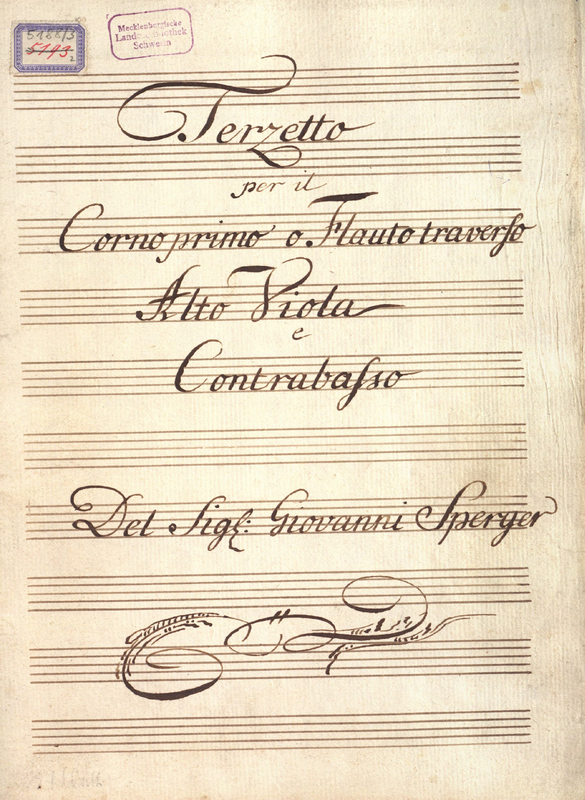 5188/3
5193
2
Mecklenburgische
Landesbibliothek
Schwerin
Terzetto
per il
Corno primo o Flauto traverso
Alto Viola
e
Contrabasso
Del Sigl: Giovanni Sperger